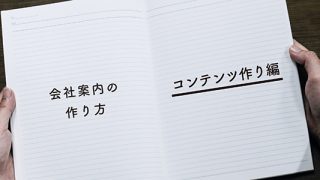 会社案内の
作り方
コンテンツ作り編